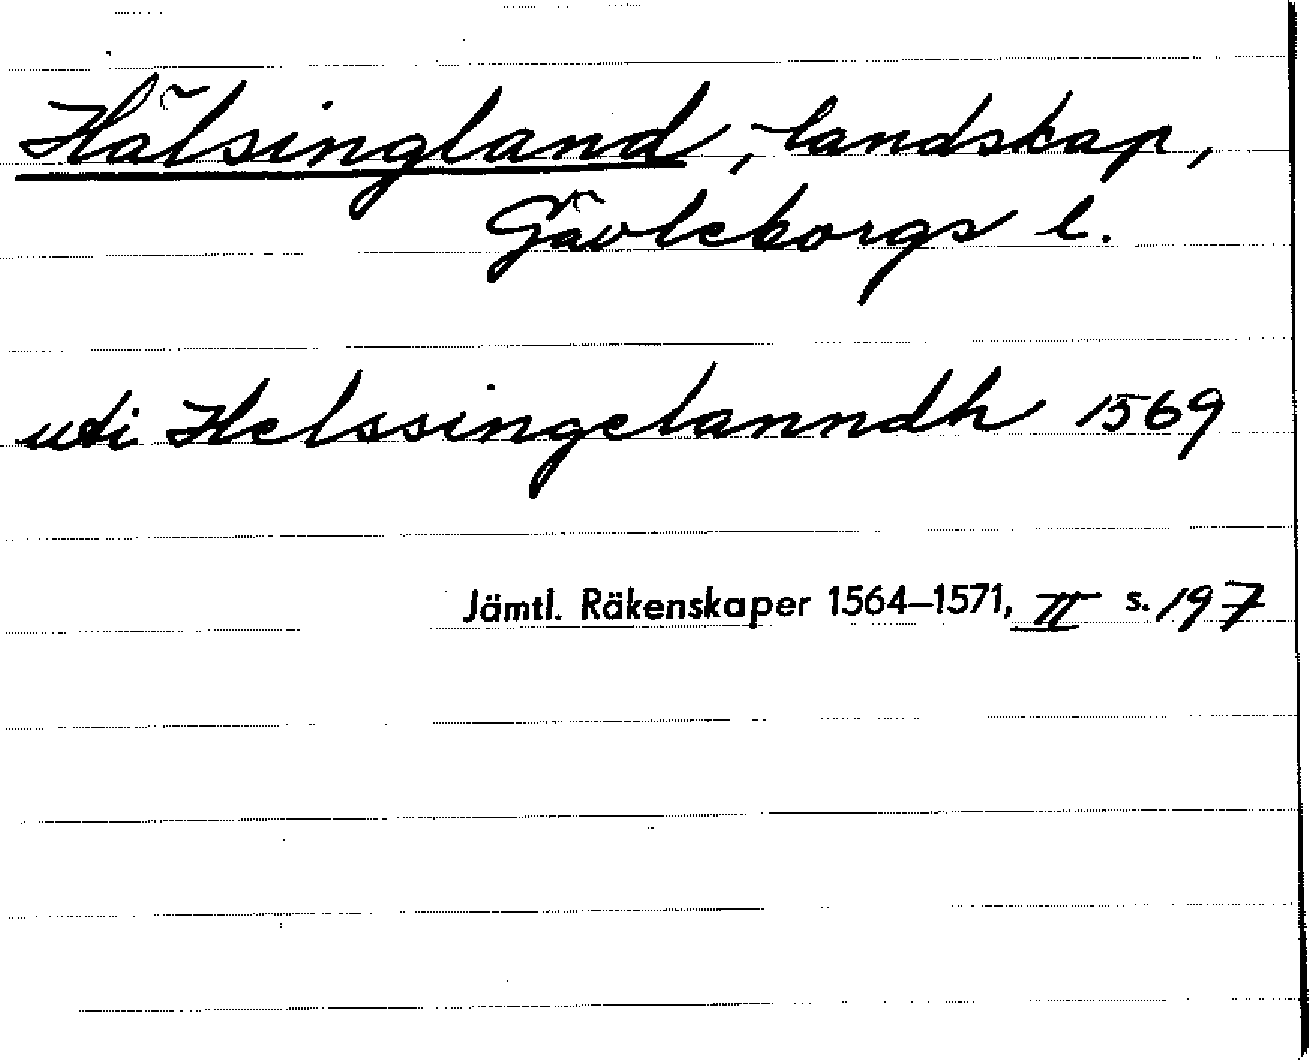 Hälsingland, landskap,
Gävleborgs l.
uti Helssingelanndh 1569
Jämtl. Räkenskaper 1564–1571, II s. 197